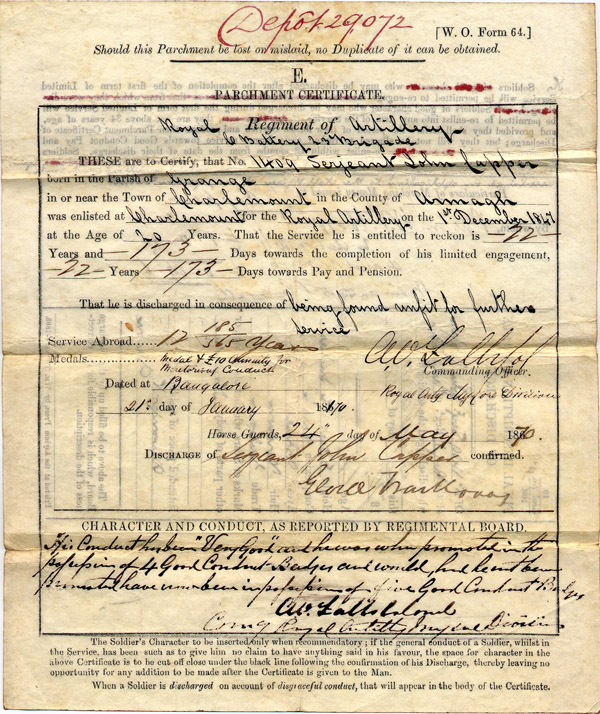 Depôt 29072
[W. O. Form 64.]
Should this Parchment be lost or mislaid, no Duplicate of it can be obtained.
E.
PARCHMENT CERTIFICATE.
Royal Regiment of Artillery
C Battery Brigade
THESE are to Certify, that No. 1409 Serjeant John Capper
born in the Parish of Grange
in or near the Town of Charlemount in the County of Armagh
was enlisted at Charlemount for the Royal Artillery on the 1st December 1847
at the Age of 20 Years. That the Service he is entitled to reckon is —22—
Years and —173— Days towards the completion of his limited engagement,
—22— Years —173— Days towards Pay and Pension.
That he is discharged in consequence of being found unfit for further
service
Service Abroad...... 12 185/365 Years
Medals............ Medal & £10 Annuity for
Meritorious Conduct
Commanding Officer.
Dated at Bangalore
Royal Arty Mysore Division
21st day of January 1870.
Horse Guards, 24th day of May 1870.
DISCHARGE of Sergeant John Capper confirmed.
CHARACTER AND CONDUCT, AS REPORTED BY REGIMENTAL BOARD.
His Conduct has been "Very Good" and he was when promoted in the
possession of 4 Good Conduct Badges and would, had he not been
promoted have now been in possession of five Good Conduct Badges
Colonel
Comg Royal Artillery Mysore Division
The Soldier's Character to be inserted only when recommendatory; if the general conduct of a Soldier, whilst in
the Service, has been such as to give him no claim to have anything said in his favour, the space for character in the
above Certificate is to be cut off close under the black line following the confirmation of his Discharge, thereby leaving no
opportunity for any addition to be made after the Certificate is given to the Man.
When a Soldier is discharged on account of disgraceful conduct, that will appear in the body of the Certificate.